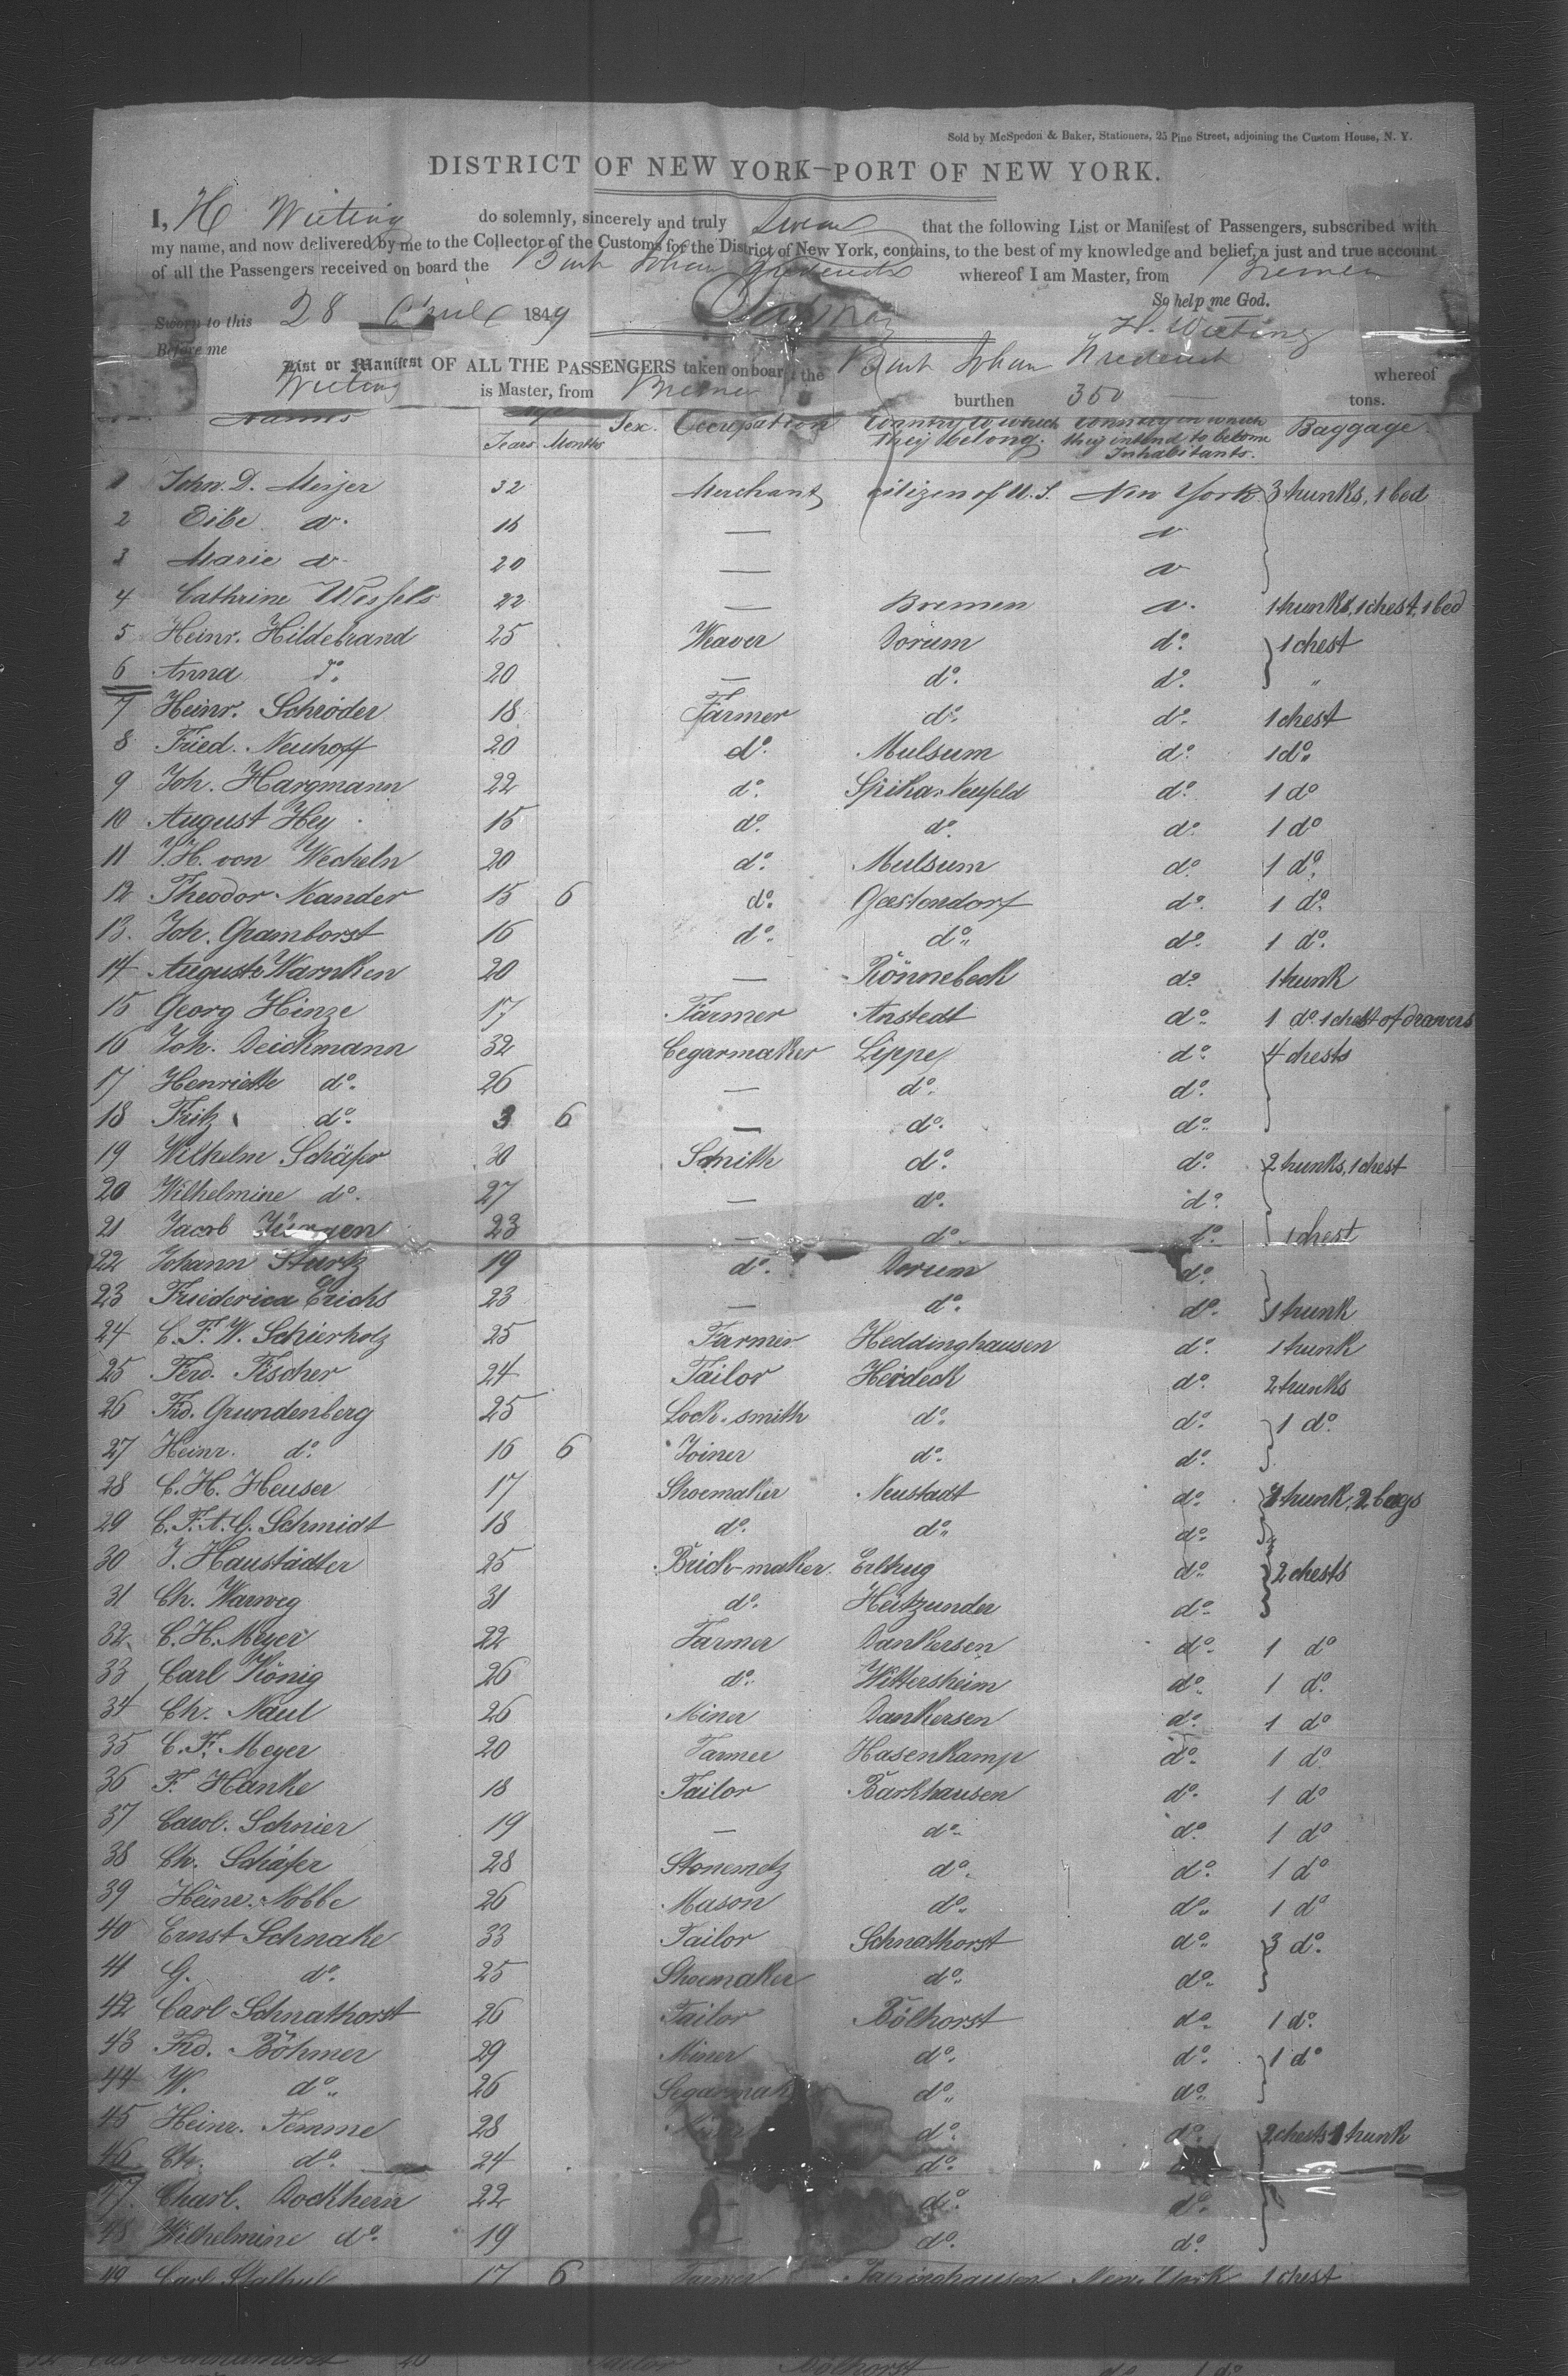 Sold by McSpedon & Baker, Stationers, 25 Pine Street, adjoining the Custom House, N. Y.
DISTRICT OF NEW YORK—PORT OF NEW YORK.
I, H Wieting do solemnly, sincerely and truly swear that the following List or Manifest of Passengers, subscribed with
my name, and now delivered by me to the Collector of the Customs for the District of New York, contains, to the best of my knowledge and belief, a just and true account
of all the Passengers received on board the Bark Johan Frederich whereof I am Master, from Bremen
So help me God.
Sworn to this 28 April 1849 H. Wieting
Before me
List or Manifest OF ALL THE PASSENGERS taken on board the Bark Johan Frederich whereof
Wieting is Master, from Bremen burthen 350 tons.
Names Age Sex. Occupation Country to which they belong. Country in which they intend to become Inhabitants. Baggage.
Years Months
1 John. D. Meijer 32 Merchant citizen of U. S. New York 3 trunks, 1 bed
2 Eibe do. 16 — do
3 Marie do. 20 — do
4 Cathrine Wessels 22 — Bremen do. 1 trunks, 1 chest, 1 bed
5 Heinr. Hildebrand 25 Weaver Dorum do. 1 chest
6 Anna do. 20 — do. do. "
7 Heinr. Schröder 18 Farmer do. do. 1 chest
8 Fried. Neuhoff 20 do. Mulsum do. 1 do.
9 Joh. Hargmann 22 do. Spika-Neufeld do. 1 do
10 August Hey 15 do. do. do. 1 do
11 J. H. von Wecheln 20 do. Mulsum do. 1 do.
12 Theodor Neander 15 6 do. Geestendorf do. 1 do.
13. Joh. Gramborst 16 do. do. do. 1 do.
14 Auguste Warnken 20 — Rönnebeck do. 1 trunk
15 Georg Hinze 17 Farmer Anstedt do. 1 do. 1 chest of drawers
16 Joh. Deickmann 32 Cegarmaker Lippe do. 4 chests
17 Henriette do. 26 — do. do.
18 Fritz do. 3 6 — do. do.
19 Wilhelm Schäfer 30 Smith do. do. 2 trunks, 1 chest
20 Wilhelmine do. 27 — do. do.
21 Jacob Jürgen 23 — do. do. 1 chest
22 Johann Startz 19 do. Dorum do.
23 Friederica Erichs 23 — do. do. 1 trunk
24 C. F. W. Schierholz 25 Farmer Heddinghausen do. 1 trunk
25 Ferd. Fischer 24 Tailor Heideck do. 2 trunks
26 Frd. Grundenberg 25 Lock-smith do. do. 1 do.
27 Heinr. do. 16 6 Joiner do. do.
28 C. H. Heuser 17 Shoemaker Neustadt do. 1 trunk, 2 bags
29 C. F. A. G. Schmidt 18 do. do. do.
30 J. Haustädter 25 Brick-maker Erlhug do. 2 chests
31 Ch. Warweg 31 do. Heitzunder do.
32 C. H. Meyer 22 Farmer Dankersen do. 1 do
33 Carl König 26 do. Wittersheim do. 1 do.
34 Ch. Naul 26 Miner Dankersen do. 1 do
35 C. F. Meyer 20 Farmer Hasenkamp do. 1 do
36 F. Hanke 18 Tailor Barkhausen do. 1 do
37 Carol. Schnier 19 — do. do. 1 do
38 Ch. Schäfer 28 Stonemetz do. do. 1 do
39 Heinr. Nobbe 26 Mason do. do. 1 do
40 Ernst Schnake 33 Tailor Schnathorst do. 3 do.
41 G. do. 25 Shoemaker do. do.
42 Carl Schnathorst 26 Tailor Bölhorst do. 1 do.
43 Frd. Böhmer 29 Miner do. do. 1 do
44 W. do. 26 Segarmak do. do.
45 Heinr. Temme 28 Miner do. do. 2 chests 1 trunk
46 Ch. do. 24 do.
47. Charl. Dockhern 22 — do. do.
48 Wilhelmine do. 19 — do. do.
49 Carl 17 6 Farmer New York 1 chest
Carl Schnathorst 26 Tailor Bölhorst do. 1 do.